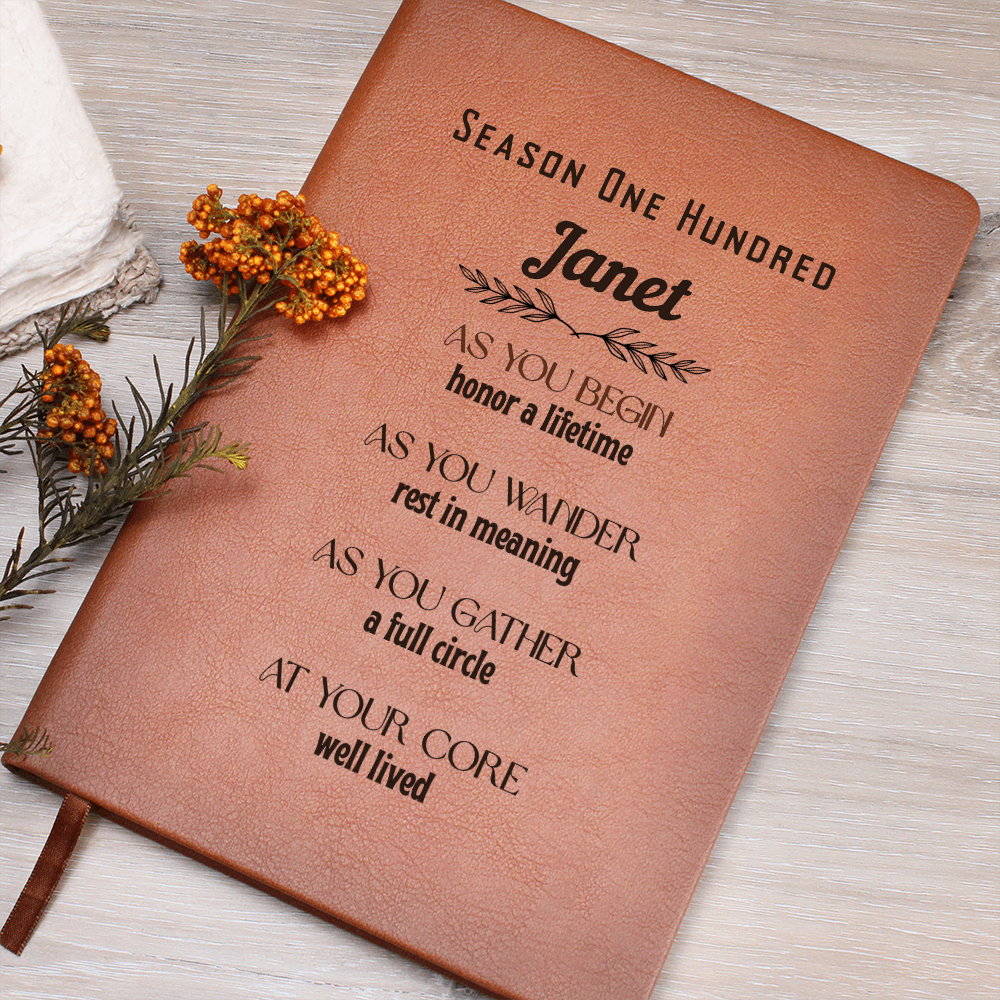 Season One Hundred
Janet
AS YOU BEGIN
honor a lifetime
AS YOU WANDER
rest in meaning
AS YOU GATHER
a full circle
AT YOUR CORE
well lived